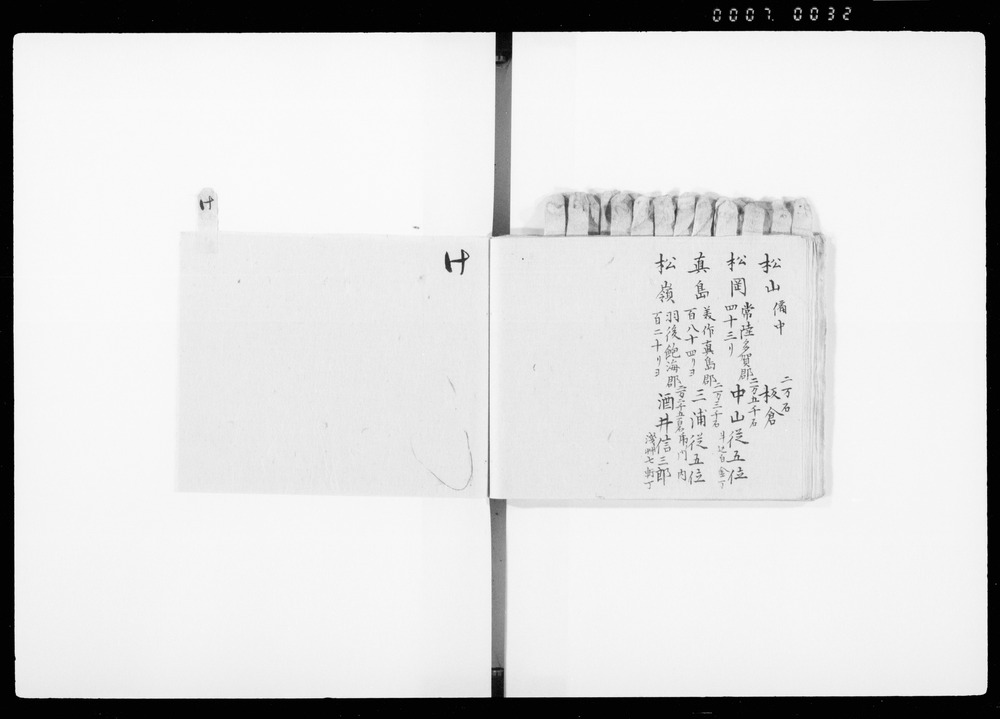 0007 0032
松山 備中
二万石
板倉
松岡 常陸多賀郡
四十三リ
二万五千石
中山従五位
真島 美作真島郡
百八十四リヨ
二万三千石
三浦従五位
松嶺 羽後飽海郡
百二十リヨ
酒井信三郎
ケ
ケ